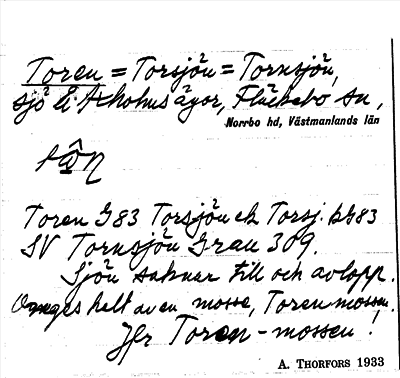 Toren = Torsjön = Tornsjön,
sjö å Ahohus ägor, Fläckebo sn,
Norrbo hd, Västmanlands län
Toren G83 Torsjön ek Torsj. bG83
SV Tornsjön Grau 309.
Sjön saknar till och avlopp.
Omges helt av en mosse, Torenmossen.
Jfr Toren-mossen!
A. THORFORS 1933